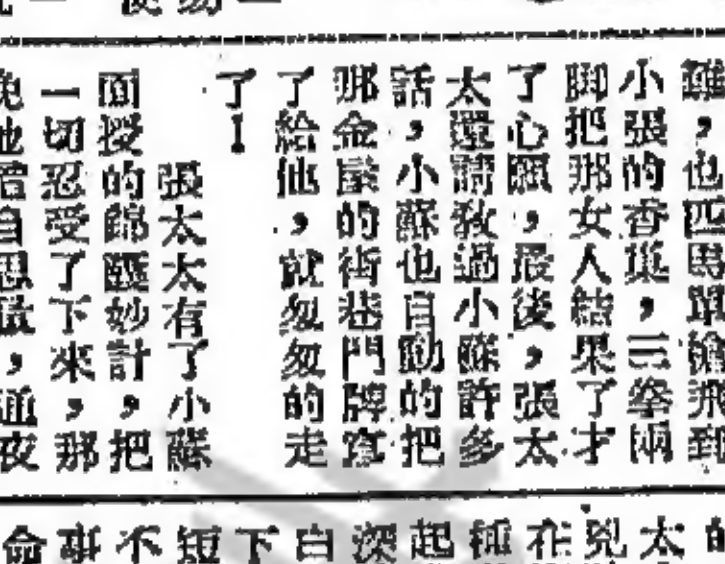 難，也匹馬單槍飛到
小張的香巢，三拳兩
脚把那女人結果了才
了心願，最後，張太
太還請敎過小蘇許多
話，小蘇也自動的把
那金屋的街巷門牌寫
了給他，就匆匆的走
了！
張太太有了小蘇
面授的錦囊妙計，把
一切忍受了下來，那
晚她暗自思量，通夜
的太兇在種起深白下短不事命